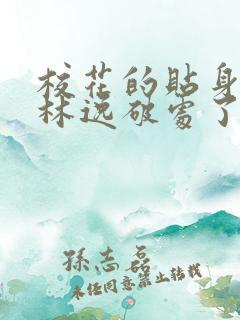 校花的贴身
林逸破处了
孫志磊
未经同意禁止转载